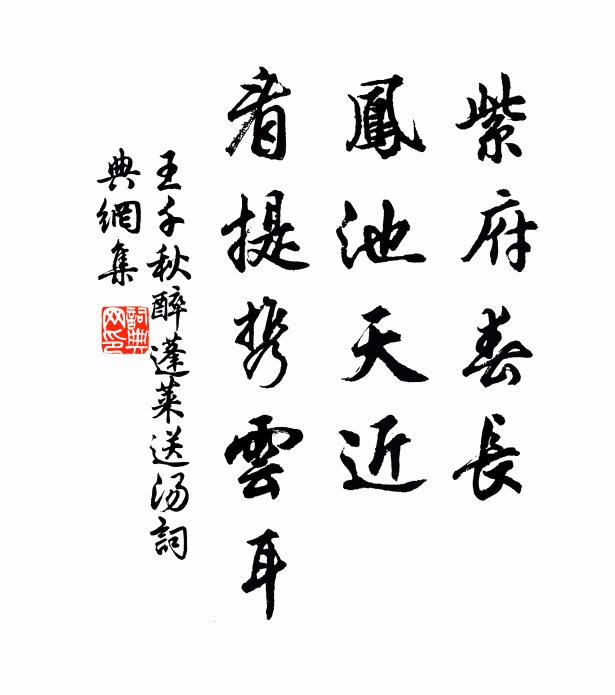 紫府春長
鳳池天近
看提携雲耳
王千秋醉蓬萊送汤詞
典網集
詞典
网印